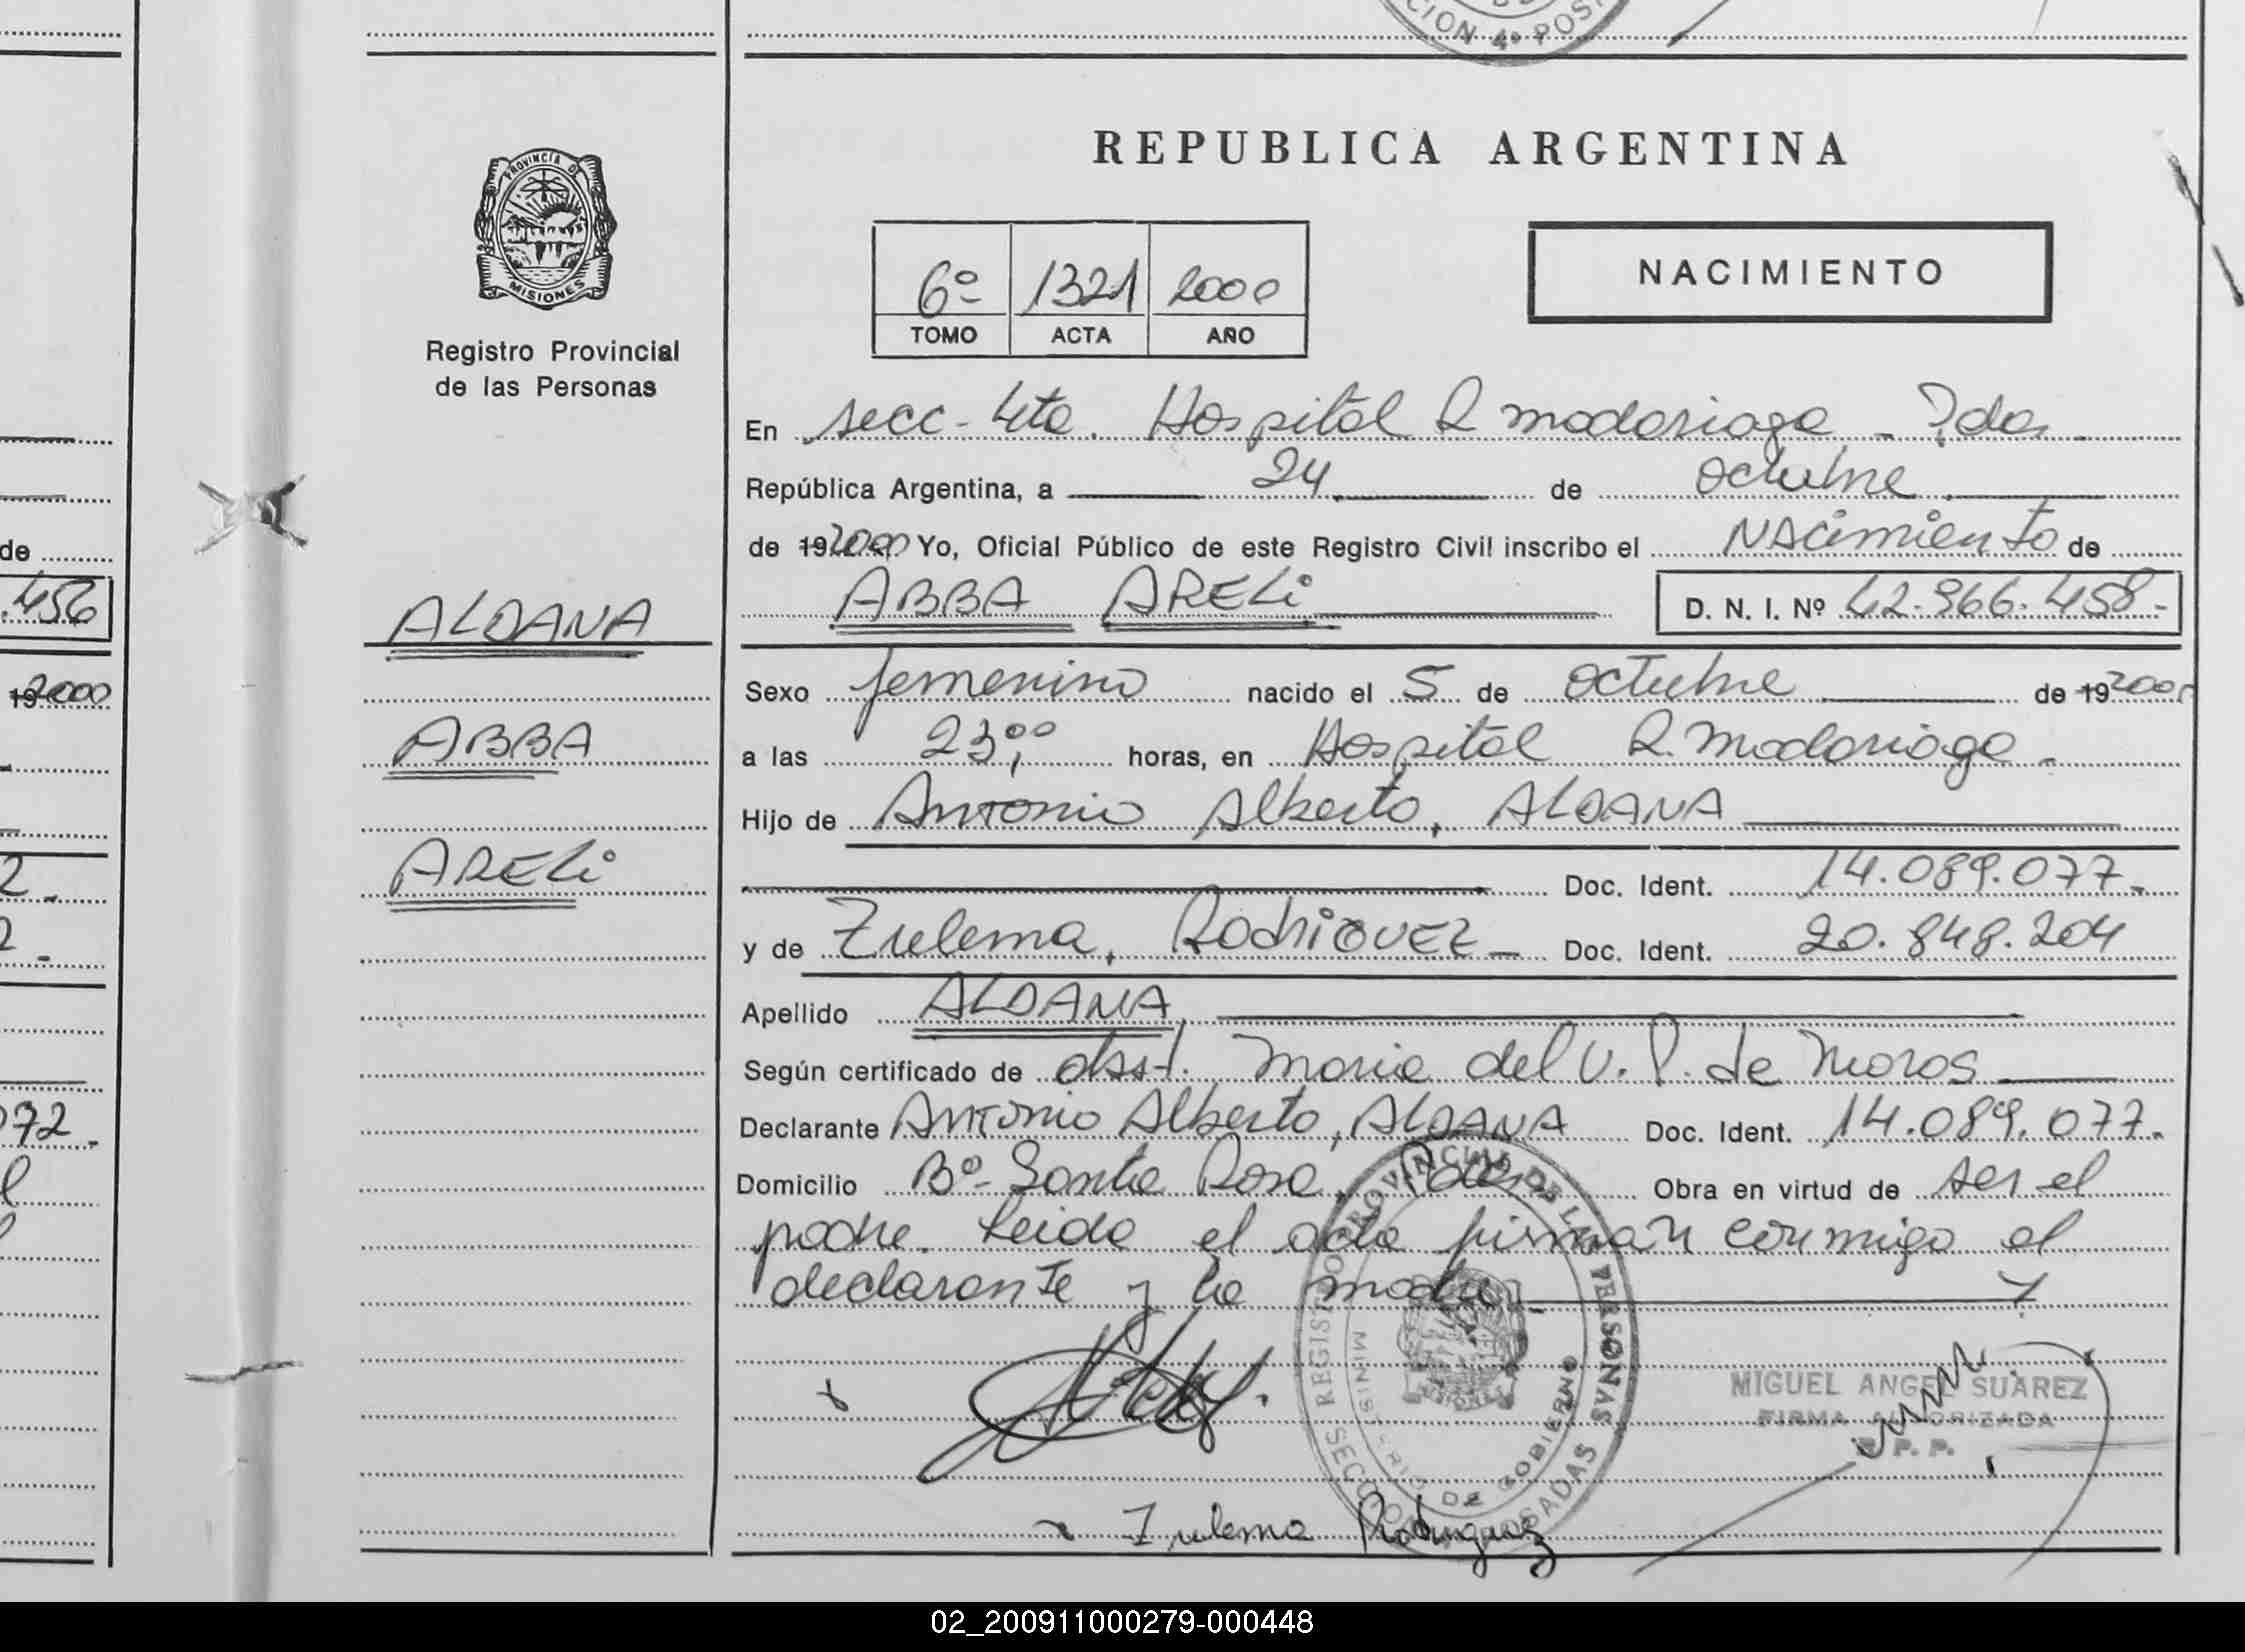 CION 4º POS
REPUBLICA ARGENTINA
PROVINCIA DE
MISIONES
Registro Provincial
de las Personas
6º 1321 2000
TOMO ACTA AÑO
NACIMIENTO
En secc- 4ta. Hospital R madariaga - Pdas.
República Argentina, a 24 de octubre
de 19 2000 Yo, Oficial Público de este Registro Civil inscribo el NAcimiento de
ABBA ARELi D. N. I. Nº 42.966.458-
de
.456
19 2000
2.
2.
072.
ALDANA
ABBA
ARELi
Sexo femenino nacido el 5 de octubre de 19 2000
a las 23,00 horas, en Hospital R. madariaga.
Hijo de Antonio Alberto, ALDANA
Doc. Ident. 14.089.077.
y de Zulema, RodriGUEZ Doc. Ident. 20.848.204
Apellido ALDANA
Según certificado de obst. maria del V. P. de Moros
Declarante Antonio Alberto, ALDANA Doc. Ident. 14.089.077.
Domicilio Bº Santa Rosa, Pdas Obra en virtud de ser el
padre. Leida el acta firman conmigo el
declarante y la madre
REGISTRO PROVINCIAL DE LAS PERSONAS
MINISTERIO DE GOBIERNO
SECCION POSADAS
MIGUEL ANGEL SUAREZ
FIRMA AUTORIZADA
R.P.P.
Zulema Rodriguez
02_200911000279-000448